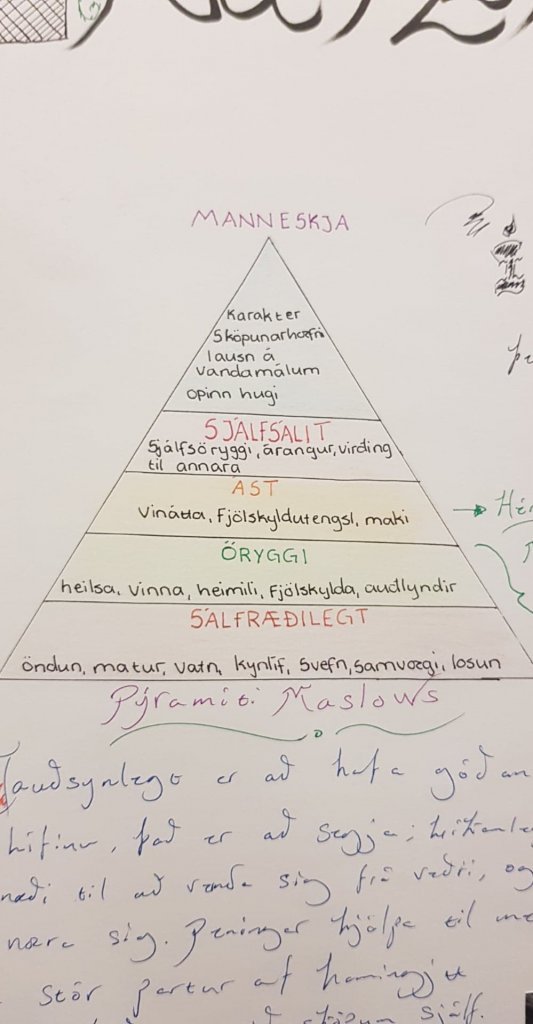 MANNESKJA
Karakter
Sköpunarhæfni
lausn á
vandamálum
opinn hugi
SJÁLFSÁLIT
Sjálfsöryggi, árangur, virðing
til annara
ÁST
Vinátta, Fjölskyldutengsl, maki
ÖRYGGI
heilsa, vinna, heimili, Fjölskylda, auðlyndir
SÁLFRÆÐILEGT
öndun, matur, vatn, kynlíf, Svefn, Samvægi, losun
Pýramíti Maslows
Nauðsynlegt er að hafa góðan
lífinu, það er að segja;
næði til að vernda sig frá veðri, og
næra sig. Peningar hjálpa til
stór partur af hamingju
sjálf.